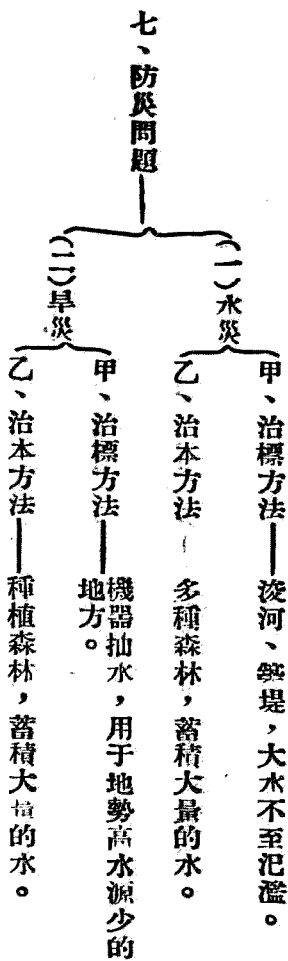 七、防災問題
（一）水災
甲、治標方法——浚河、築堤，大水不至氾濫。
乙、治本方法——多種森林，蓄積大量的水。
（二）旱災
甲、治標方法——機器抽水，用于地勢高水源少的
地方。
乙、治本方法——種植森林，蓄積大量的水。